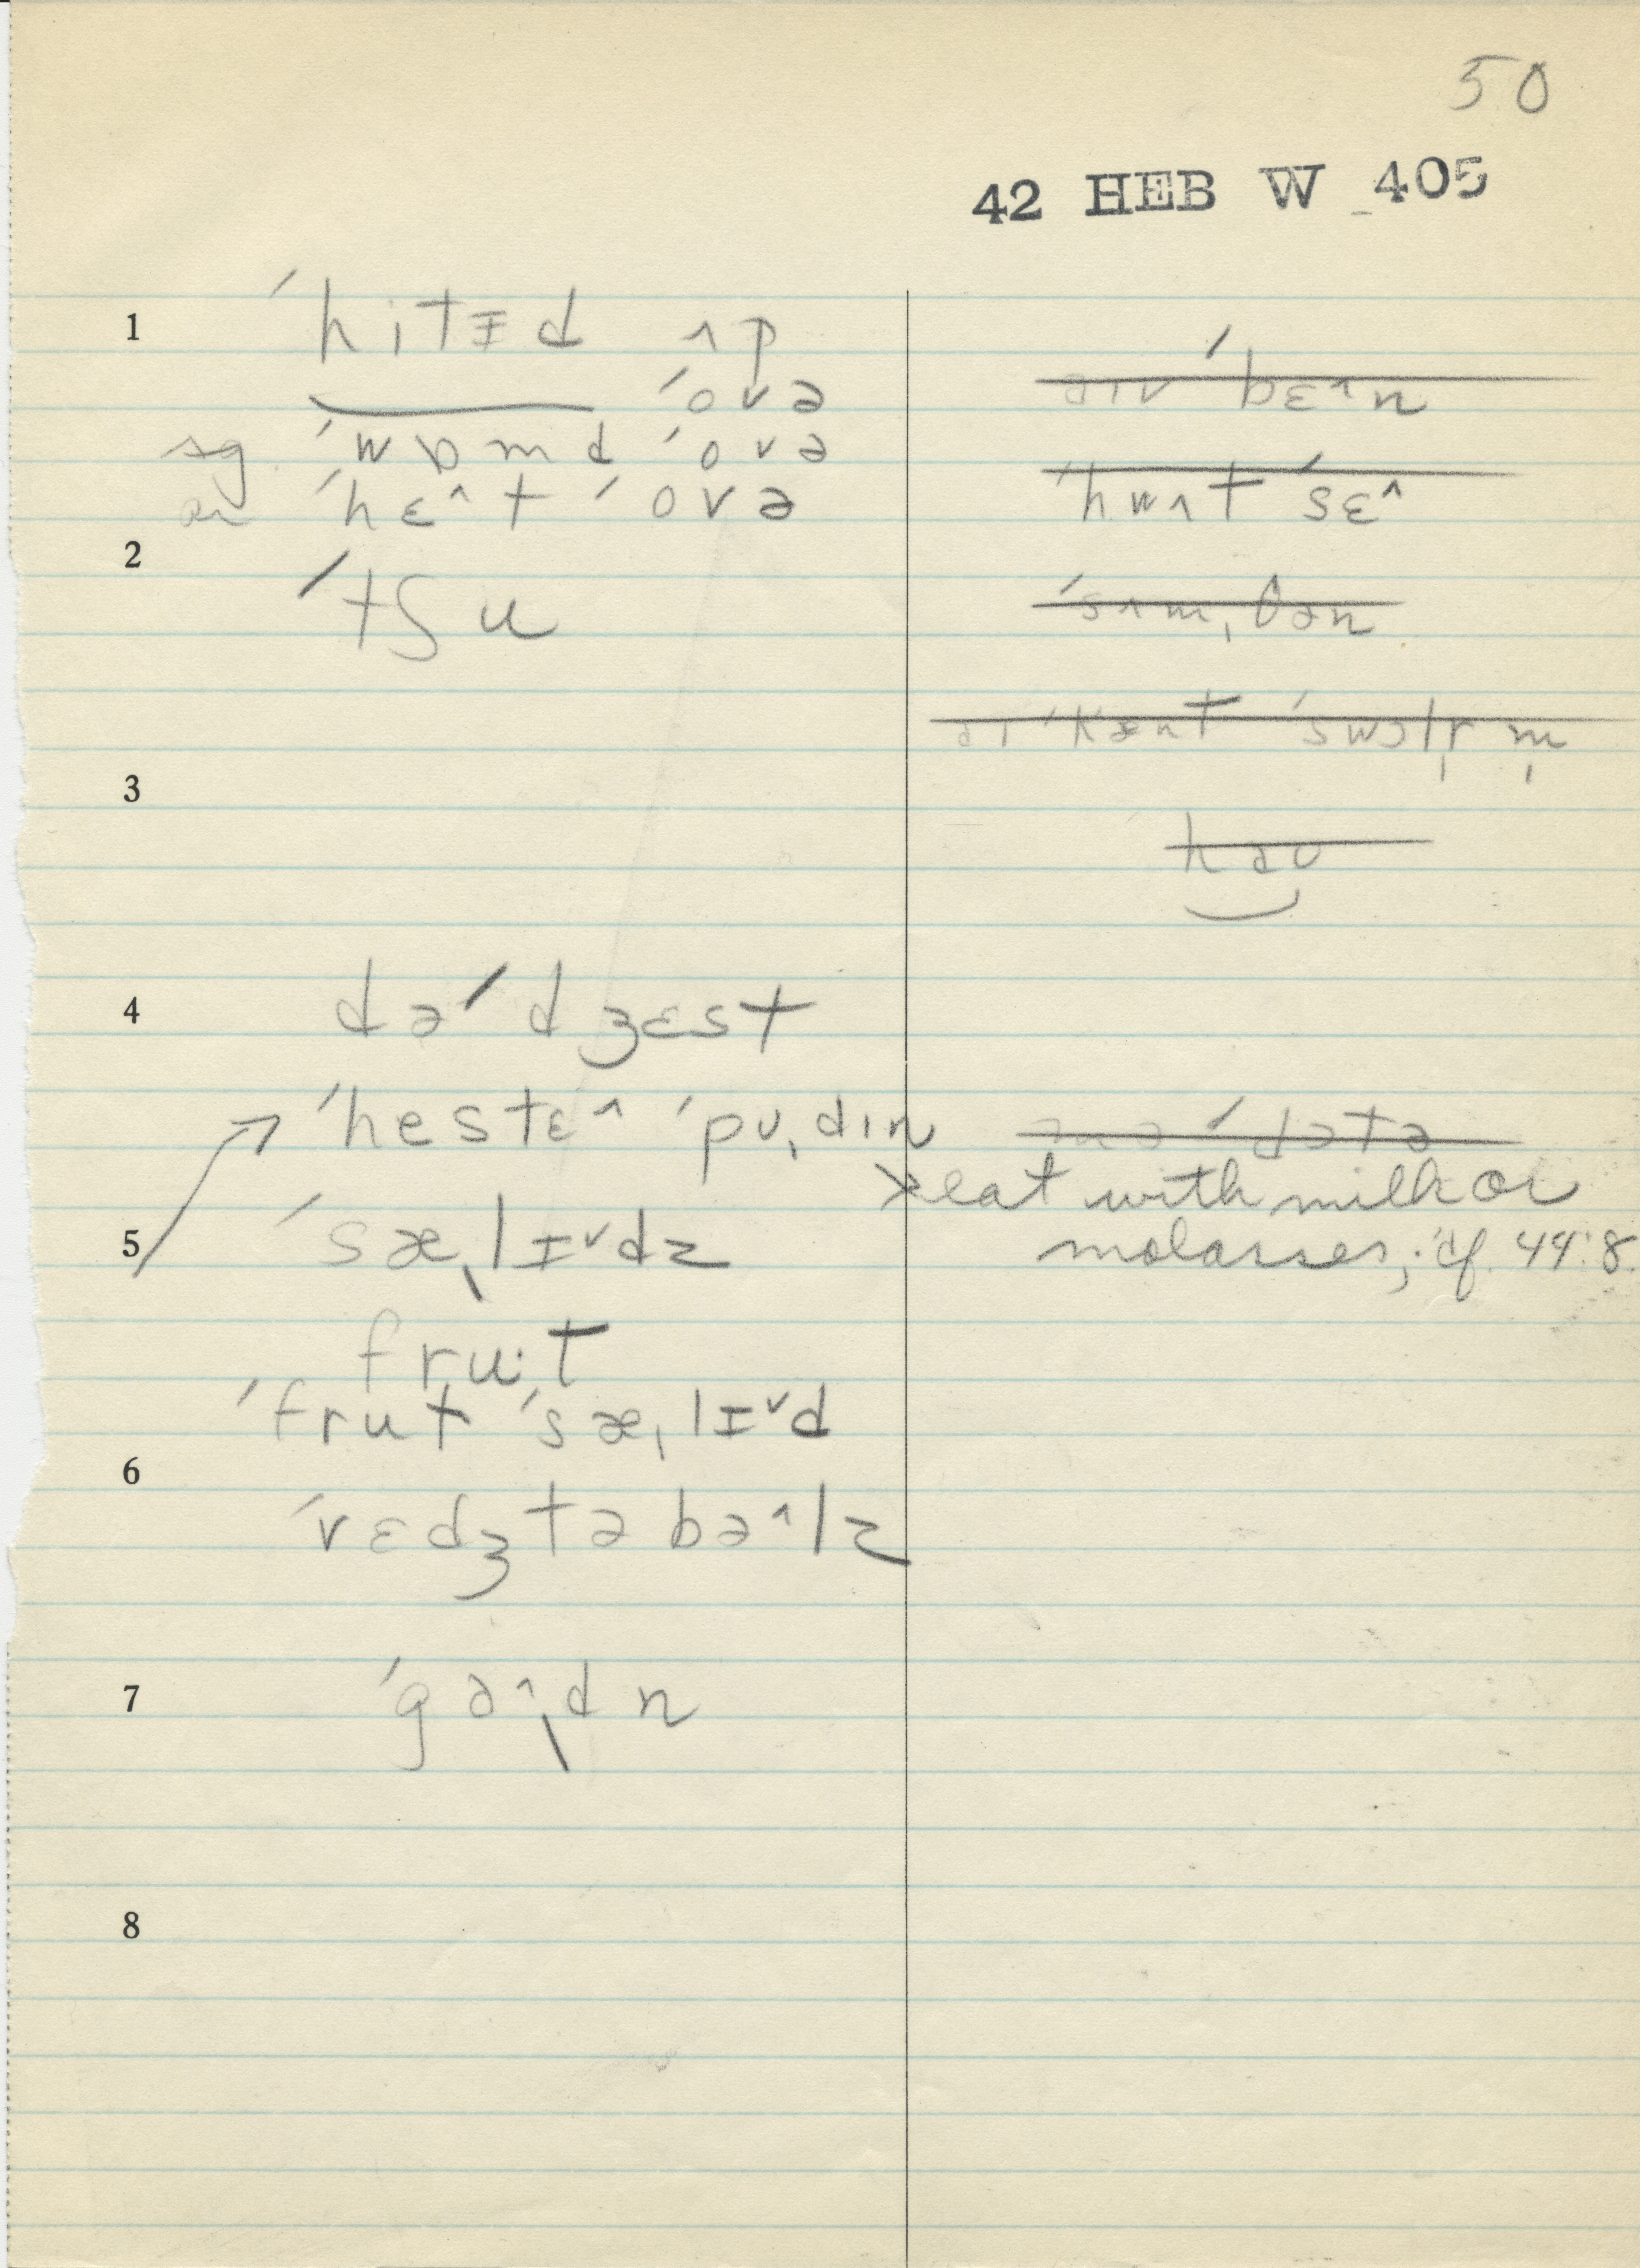 50
42 HEB W 405
1 ˈhitɪd ʌp
ˈovə
sg. ˈwɒmd ˈovə
ˈhɛ^t ˈovə
2 ˈtʃu
ˈbɛ^n
ˈhwʌt ˈsɛ^
ˈsʌmˌθən
aɪ ˈkænt ˈswɔlɪ m
3
həʊ
4 dəˈdʒɛst
ˈhestɛ^ ˈpʊˌdɪn
eat with milk or
molasses; cf. 44:8.
5 ˈsæˌlɪ˅dz
fru:t
ˈfrut ˈsæˌlɪ˅d
6
ˈvɛdʒtəbə^lz
7 ˈgɑ^ˌdn
8